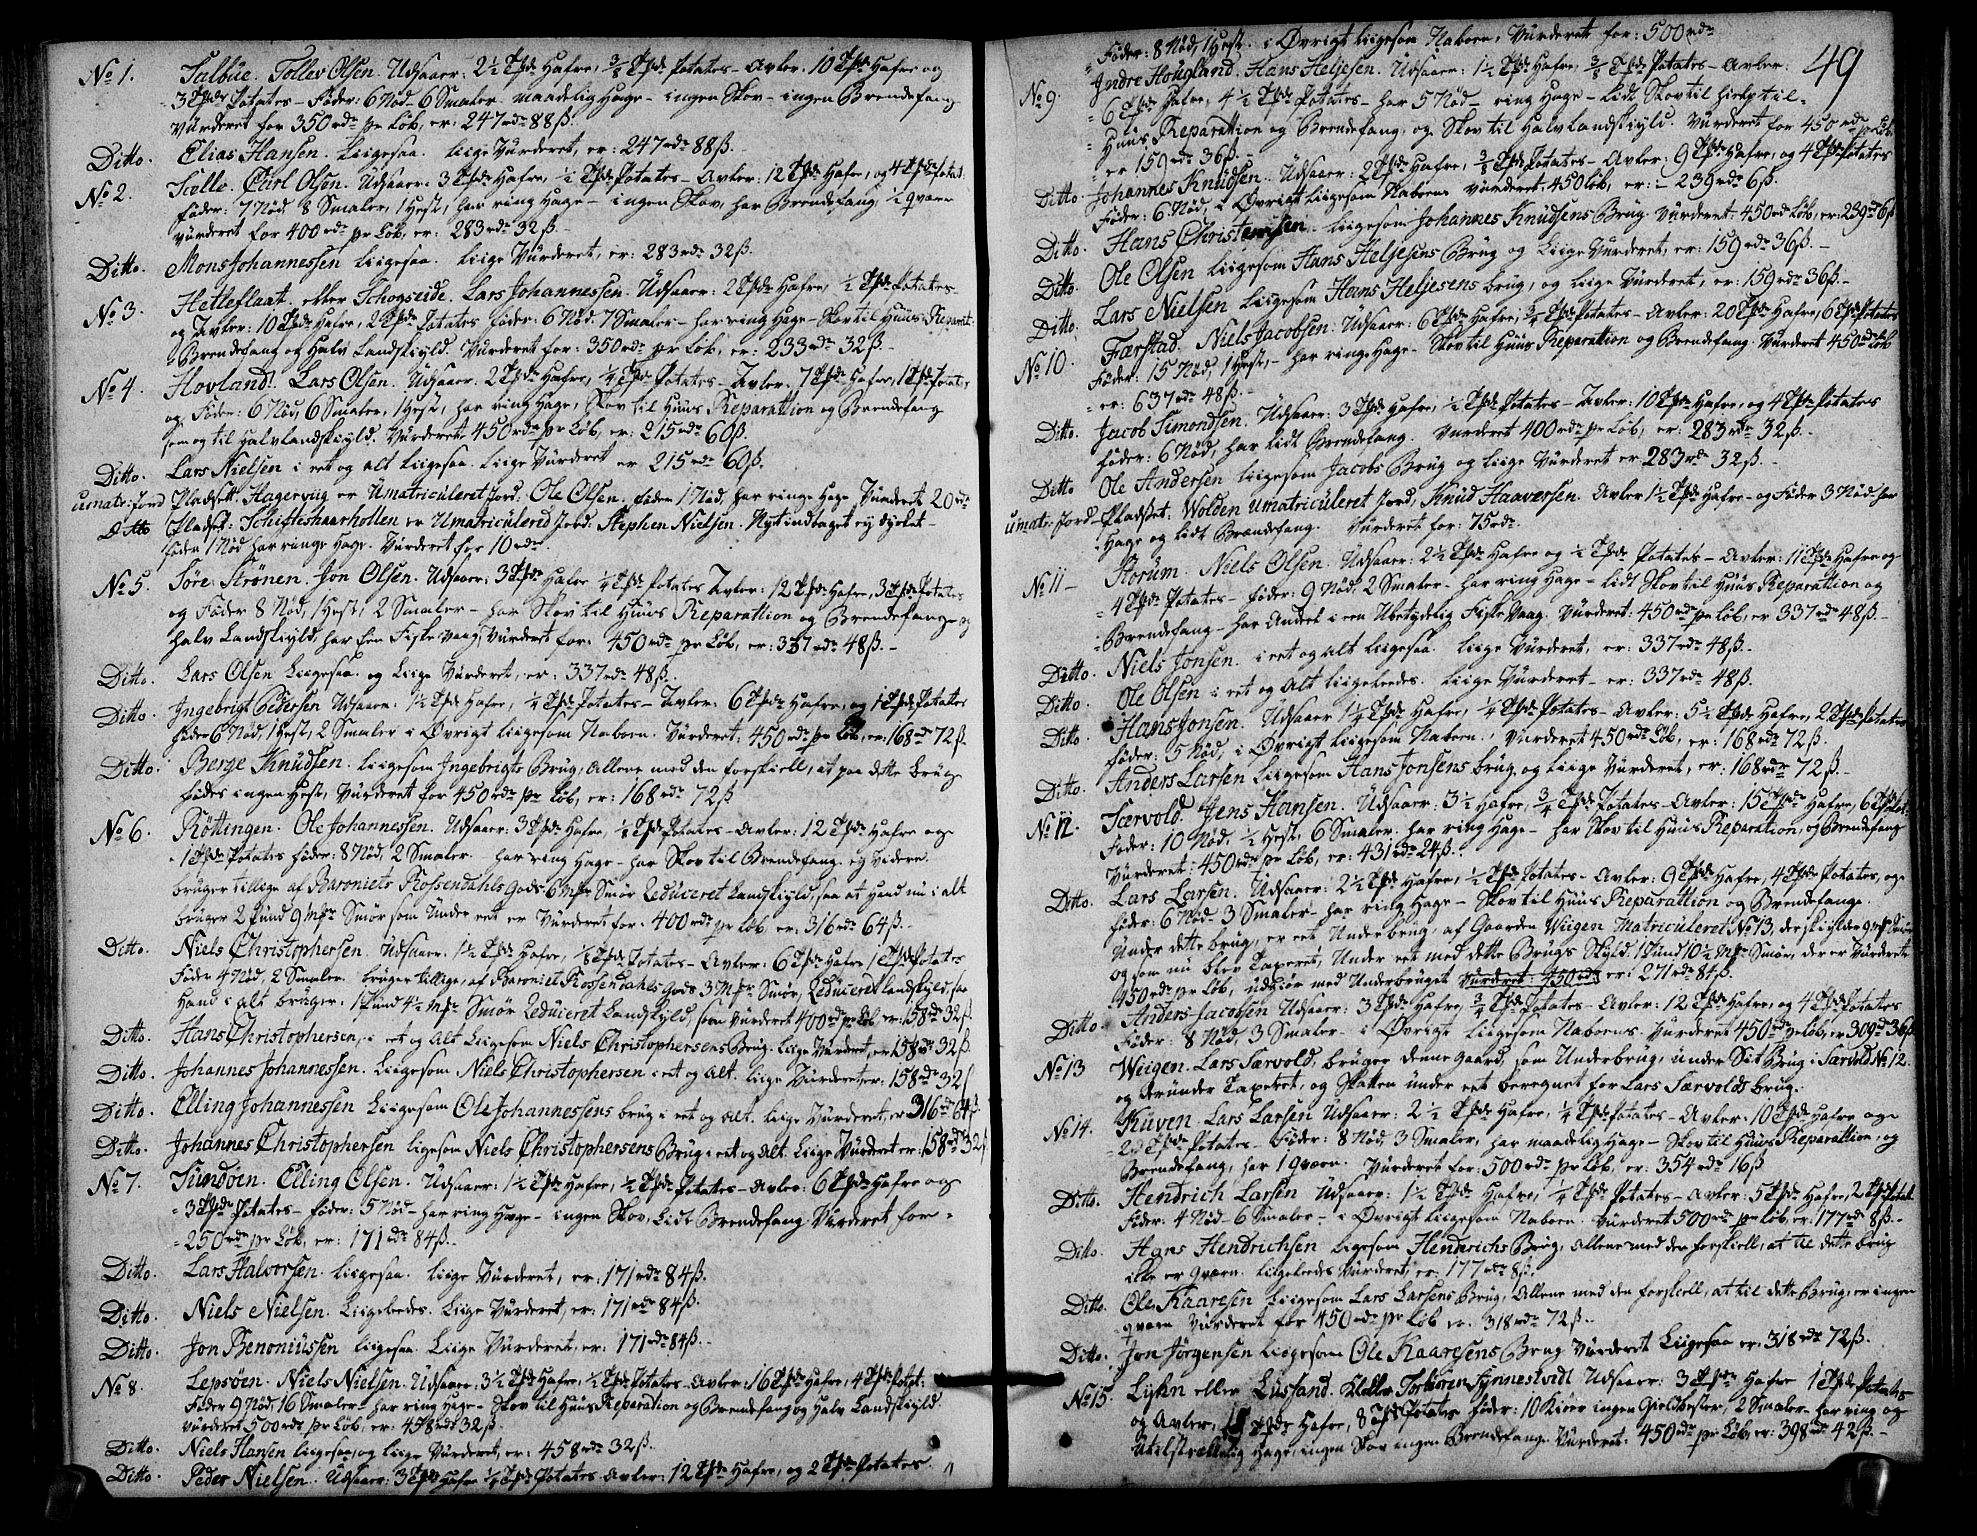 No 1. Salbüe. Tollev Olsen. Udsaaer: 2½ Tde Hafre, ⅜ Tde Potates – Avler: 10 Tde Hafre og
3 Tde Potates – Føder: 6 Nød – 6 Smaler – maadelig Hage – ingen Skov – ingen Brendefang
Vürderet for 350 rdr pr Løb, er: 247 rdr 88 ß.
Ditto. Elias Hansen. Liigesaa. liige Vürderet, er: 247 rdr 88 ß.
No 2. Carl Olsen. Udsaaer: 3 Tde Hafre, ½ Tde Potates – Avler: 12 Tde Hafre, og 4 Tde Potat:
Føder: 7 Nød 8 Smaler, 1 Hest, har ring Hage – ingen Skov, har Brendefang, ½ qværn
Vürderet for 400 rdr pr Løb, er: 283 rdr 32 ß.
Ditto. Mons Johannessen liigesaa. liige Vürderet, er: 283 rdr 32 ß.
No 3. Hetleflaat. eller Schogseide. Lars Johannessen. Üdsaaer: 2 Tde Hafre, ½ Tde Potates
og Avler: 10 Tde Hafre, 2 Tde Potates føder: 6 Nød. 7 Smaler – har ring Hage – Skov til Huus Reparat:
Brendefang og Halv Landskyld. Vürderet for: 350 rdr pr Løb, er: 233 rdr 32 ß.
No 4. Hovland. Lars Olsen. Üdsaaer: 2 Tde Hafre, ¼ Tde Potates – Avler: 7 Tde Hafre, 1 Tde Potates
og Føder: 6 Nød, 6 Smaler, 1 Hest, har ring Hage, Skov til Huus Reparattion og Brendefang
som og til Halv landskyld. Vürderet 450 rdr pr Løb, er: 215 rdr 60 ß.
Ditto. Lars Nielsen i eet og alt Liigesaa. Liige Vürderet er 215 rdr 60 ß.
umatr: Jord Pladsett. Hagervüg er Ümatricüleret Jord: Ole Olsen. føder 1 Nød, har ringe Hage Vurderet 20 rdr
Ditto Pladset: er Umatricülered Jord. Stephen Nielsen. Nyt indtaget ey dyrket –
føder 1 Nød har ringe Hage. Vürderet for 10 rdr.
No 5. Søre Strønen. Jon Olsen. Udsaaer: 3 Tde Hafre ¼ Tde Potates Avler: 12 Tde Hafre, 3 Tde Potates
og Føder 8 Nød, 1 Hest, 2 Smaler – har Skov til Huus Reparattion og Brendefang – og
halv Landskyld, har Een Fiske vaag, Vürderet for: 450 rdr pr Løb, er: 337 rdr 48 ß. –
Ditto. Lars Olsen Liigesaa. og Liige Vürderet, er: 337 rdr 48 ß.
Ditto. Ingebrigt Pedersen Udsaaer: 1½ Tde Hafre, ¼ Tde Potates – Avler: 6 Tde Hafre, og 1 Tde Potates
føder 6 Nød, 1 Hest, 2 Smaler i Øvrigt liigesom Naboen. Vürderet: 450 rdr pr Løb, er: 168 rdr 72 ß.
Ditto. Berge Knüdsen. liigesom Ingebrigts Brüg, Allene med den forskiell, at paa dette brüg
födes ingen Hest, Vürderet for 450 rdr pr Løb, er: 168 rdr 72 ß
No 6. Röttingen. Ole Johannessen. Udsaaer: 3 Tde Hafre, ½ Tde Potates – Avler: 12 Tde Hafre og
1 Tde Potates føder: 8 Nød, 2 Smaler – har ring Hage – har Skov til Brendefang. ey Videre.
bruger tillige af Baroniets Rossendahls Gods 6 Mrk Smør Reduceret Landskyld, saa at Hand nu i alt
brüger 2 Pund 9 Mrk Smør som Under eet er Vürderet for – 400 rdr pr Løb er: 316 rdr 64 ß. –
Ditto. Niels Christophersen. Üdsaaer: 1½ Tde Hafre, ⅛ Tde Potates – Avler: 6 Tde Hafre, 1 Tde Potates
Føder 4 Nød, 2 Smaler. brüger tillige, af Baroniet Rossendahls Gods 3 Mrk Smør, Reduceret landskyld, saa
Hand i alt brüger: 1 Pund 4½ Mrk Smør Reduceret Landskyld, som Vürderet 400 rdr pr Løb er: 158 rdr 32 ß.
Ditto. Hans Christophersen, i eet og alt Liigesom Niels Christophersens Brüg. liige Vürderet, er 158 rdr 32 ß.
Ditto. Johannes Johannessen. Liigesom Niels Christophersen i eet og alt. liige Vürderet er: 158 rdr 32 ß
Ditto. Elling Johannessen Liigesom Ole Johannessens brüg i eet og alt. liige Vürderet, er 316 rdr 64 ß.
Ditto. Johannes Christophersen ligesom Niels Christophersens Brüg i eet og alt. Liige Vürderet er: 158 rdr 32 ß
No 7. Sundöen. Elling Olsen. Udsaaer: 1½ Tde Hafre, ½ Tde Potates – Avler: 6 Tde Hafre og
3 Tde Potates – føder: 5 Nød – har ring Hage – ingen Skov, Lidt Brendefang Vürderet for –
250 rdr pr Løb, er: 171 rdr 84 ß.
Ditto. Lars Halvorsen. liigesaa. liige Vürderet, er: 171 rdr 84 ß.
Ditto. Niels Nielsen. Liigeledes. Liige Vürderet, er: 171 rdr 84 ß.
Ditto. Jon Benoniüssen liigesaa. Liige Vürderet, er: 171 rdr 84 ß.
No 8. Lepsøen. Niels Nielsen. Üdsaaer, 3½ Tde Hafre, ½ Tde Potates – Avler: 16 Tde Hafre, 4 Tde Potat:
Føder 9 Nød, 16 Smaler – har ring Hage – Skov til Huus Reparation og Brendefang og Halv Landskyld.
Vürderet 500 rdr pr Løb, er: 458 rdr 32 ß.
Ditto. Niels Hansen liigesaa, og liige Vürderet, er: 458 rdr 32 ß.
Ditto. Peder Nielsen. Udsaaer: 3 Tde Hafre ¼ Tde Potates Avler: 12 Tde Hafre, og 2 Tde Potates.
49
Føder: 8 Nød, 1 Hest. i Øvrigt liigesom Naboen, Vürderet for: 500 rdr
No 9. Indre Hougland. Hans Heljesen. Udsaaer: 1½ Tde Hafre, ⅜ Tde Potates – Avler:
6 Tde Hafre, 4½ Tde Potates – har 5 Nød – ring Hage – lidt Skov til hielp til –
Huus Reparattion og Brendefang, og Skov til Halv Landskyld. Vürderet for 450 rdr pr Løb
er 159 rdr 36 ß. –
Ditto – Johannes Knüdsen. Üdsaaer: 2 Tde Hafre, ⅜ Tde Potates – Avler, 9 Tde Hafre, og 4 Tde Potates
Føder: 6 Nød, i Øvrigt liigesom Naboens Vürderet 450 Løb, er: – 239 rdr 6 ß.
Ditto. Hans Christensen – liigesom Johannes Knüdsens Brüg. Vürderet. 450 rdr Løb, er: 239 rdr 6 ß
Ditto. Ole Olsen liigesom Hans Heljesens Brüg og Liige Vürderet, er: 159 rdr 36 ß. –
Ditto. Lars Nielsen liigesom Hans Heljesens brüg, og liige Vürderet, er: 159 rdr 36 ß. –
No 10. Færstad. Niels Jacobsen: Udsaaer: 6 Tde Hafre, ¾ Tde Potates – Avler: 20 Tde Hafre, 6 Tde Potates
Føder: 15 Nød, 1 Hest, – har ringe Hage – Skov til Huus Reparattion og Brendefang. Vürderet 450 rdr Løb
er: 637 rdr 48 ß.
Ditto. Jacob Simondsen. Üdsaaer: 3 Tde Hafre, ½ Tde Potates – Avler: 10 Tde Hafre, og 4 Tde Potates
føder: 6 Nød, har lidt Brendefang. Vürderet 400 rdr pr Løb, er: 283 rdr 32 ß. –
Ditto Ole Andersen liigesom Jacobs Brüg og liige Vürderet er 283 rdr 32 ß. –
umatr: Jord – Pladset: Wolden Umatricüleret Jord, Knüd Haaversen. Avler 1½ Tde Hafre – og Føder 3 Nød. har
Hage og lidt Brendefang. Vürderet for: 75 rdr.
No 11 – Storum. Niels Olsen. Udsaaer: 2½ Tde Hafre og ½ Tde Potates – Avler: 11 Tde Hafre og
4 Tde Potates – føder: 9 Nød. 2 Smaler – har ring Hage – lidt Skov til Huus Reparattion og
Brendefang – har Andeel i een Ubetydelig Fiske Vaag. Vürderet: 450 rdr pr Løb, er 337 rdr 48 ß. –
Ditto. Niels Jonsen. i eet og alt liigesaa. liige Vürderet, er: 337 rdr 48 ß. –
Ditto. Ole Olsen i eet og Alt liigeledes. liige Vürderet – er: 337 rdr 48 ß.
Ditto. Hans Jonsen. Üdsaaer 1¼ Tde Hafre, ¼ Tde Potates – Avler: 5½ Tde Hafre, 2 Tde Potates
føder: 5 Nød, i Øvrigt liigesom Naboen. Vürderet 450 rdr Løb, er: 168 rdr 72 ß.
Ditto. Anders Larsen liigesom Hans Jonsens brüg og liige Vürderet, er: 168 rdr 72 ß. –
No 12. Særvold. Jens Hansen. Üdsaaer: 3½ Hafre, ¾ Tde Potates – Avler: 15 Tde Hafre, 6 Tde Pot:
Føder: 10 Nød, ½ Hest, 6 Smaler. har ring Hage – har Skov til Huus Reparation, og Brendefang
Vürderet: 450 rdr pr Løb, er: 431 rdr 24 ß.
Ditto. Lars Larsen. Üdsaaer: 2½ Tde Hafre, ½ Tde Potates – Avler: 9 Tde Hafre, 4 Tde Potates, og
føder: 6 Nød – 3 Smaler – har ring Hage – Skov til Huus Reparattion og Brendefang.
Under dette brüg, er eet Underbrug, af Gaarden Wiigen Matricüleret No 13, der skylder 9 Mrk Smør
og som nu blev Taxeret, Under eet med dette Brügs Skyld 1 Pund 10½ Mrk Smør, der er Vürderet
450 rdr pr Løb, udgiør med Underbruget Vürderet: 450 rdr er: 271 rdr 84 ß.
Ditto. Anders Jacobsen Udsaaer: 3 Tde Hafre, ¾ Tde Potates – Avler: 12 Tde Hafre, og 4 Tde Potates
Føder: 8 Nød, 3 Smaler – i Øvrigt liigesom Naboens. Vürderet 450 rdr pr Løb, er 309 rdr 36 ß
No 13 Wiigen. Lars Særvold, brüger denne gaard, som Underbrug, under Sit Brüg i Særvold No 12.
og derunder Taxeret, og Skatten under eet beregnet for Lars Særvolds brug.
No 14. Küven. Lars Larsen Udsaaer: 2½ Tde Hafre, ¼ Tde Potates – Avler: 10 Tde Hafre og
2 Tde Potates – Føder: 8 Nød, 3 Smaler, har maadelig Hage – Skov til Huus Reparattion, og
Brendefang, har 1 qværn. Vürderet for: 500 rdr pr Løb, er: 354 rdr 16 ß
Ditto. Hendrich Larsen Udsaaer: 1¼ Tde Hafre, ¼ Tde Potates – Avler: 5 Tde Hafre, 2 Tde Potat:
Føder: 4 Nød – 6 Smaler – i Øvrigt liigesom Naboen. Vürderet 500 rdr pr Løb, er: 177 rdr 8 ß. –
Ditto. Hans Hendrichsen Ligesom Hendrichs Brüg, Allene med den forskiell, at til dette brüg
ikke er qværn. liigeledes Vürderet, er: 177 rdr 8 ß.
Ditto. Ole Kaaresen Liigesom Lars Larsens Brüg, Allene med den forskiell, at til dette Brüg, er ingen
qværn Vürderet for 450 rdr pr Løb er: 318 rdr 72 ß. –
Ditto. Jon Jörgensen liigesom Ole Kaaresens Brüg Vürderet Liigesaa er: 318 rdr 72 ß.
No 15. Lysen eller Lusland. Torbiören Synnestvedt Udsaaer: 3 Tde Hafre 1 Tde Potates
og Avler, Tde Hafre, 8 Tde Potates føder: 10 Kiöer ingen Hester, 2 Smaler. har ring og
Utilstrekkelig Hage, ingen Skov ingen Brendefang. Vürderet: 450 rdr pr Løb, er: 398 rdr 42 ß. –